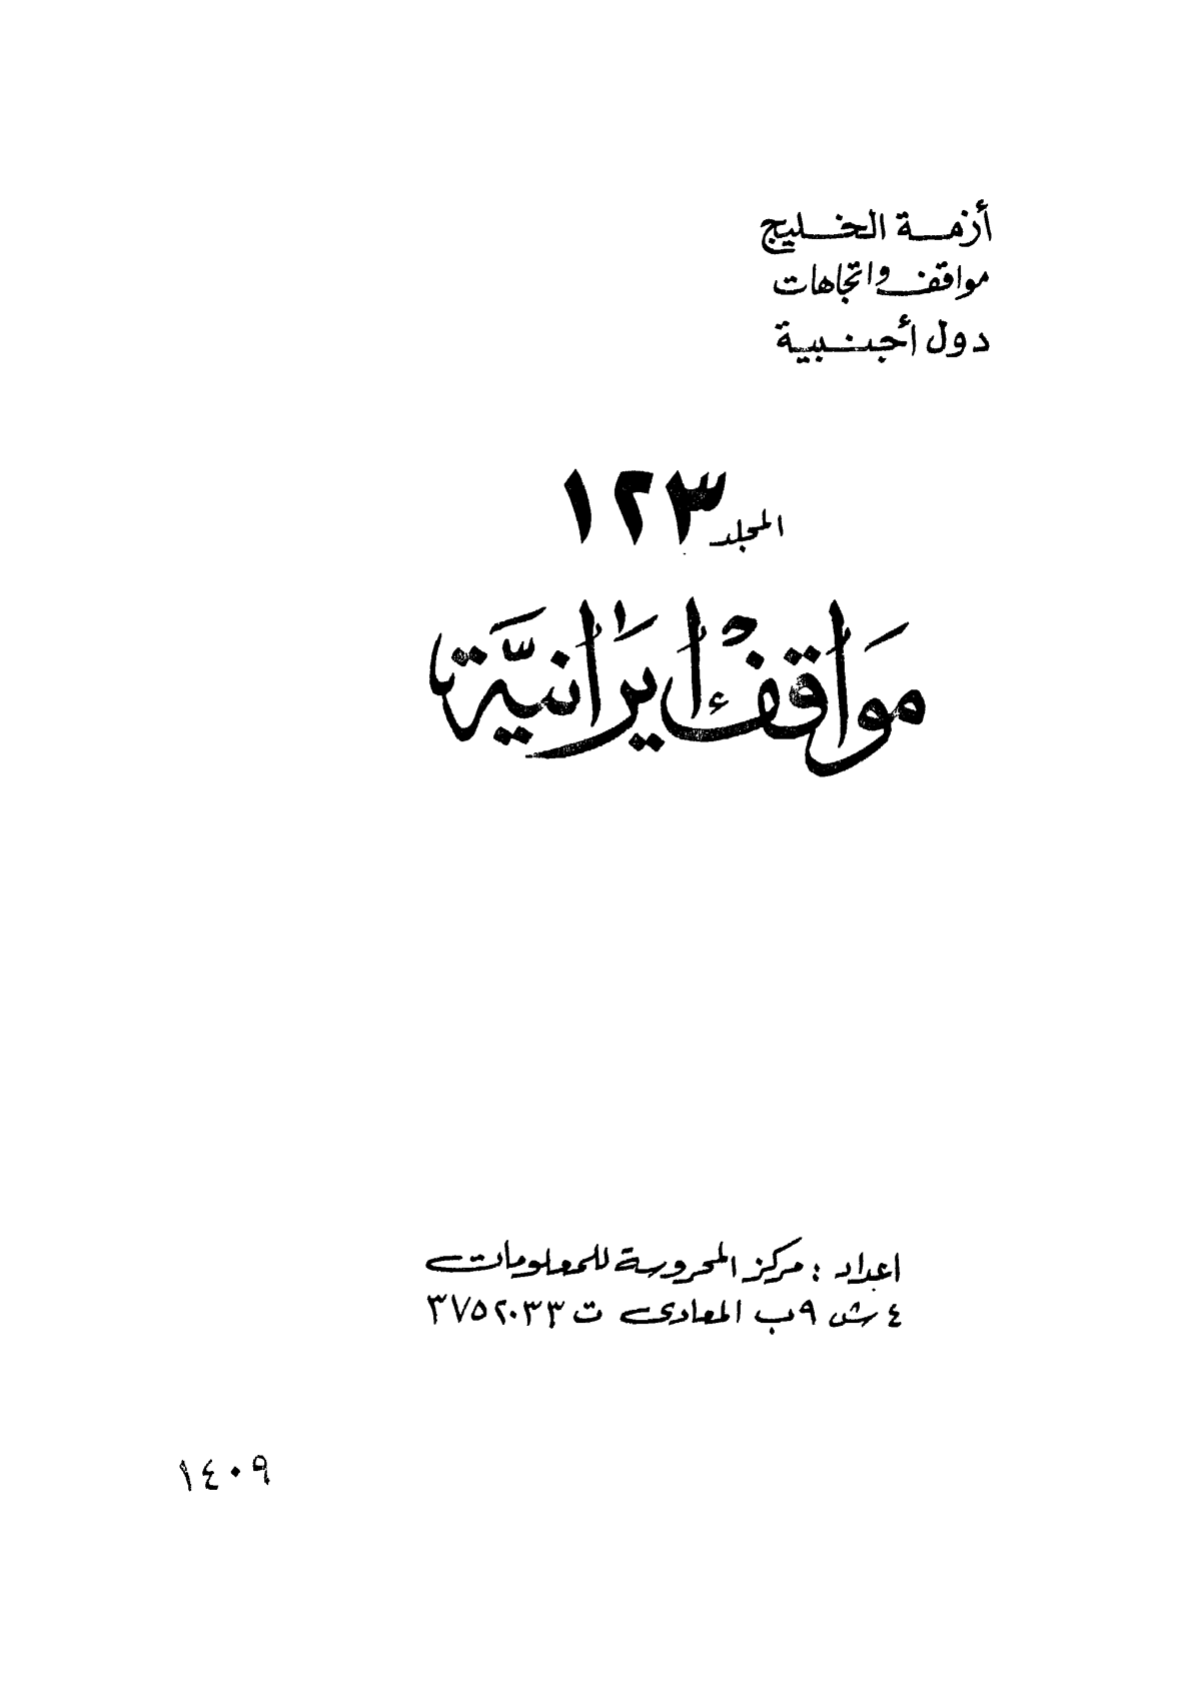 أزمة الخليج
مواقف واتجاهات
دول أجنبية
المجلد ١٢٣
مَواقفْ ايرَانيَّة
اعداد : مركز المحروسة للمعلومات
٤ ش ٩ب المعادى ت ٣٧٥٢٠٣٣
١٤٠٩